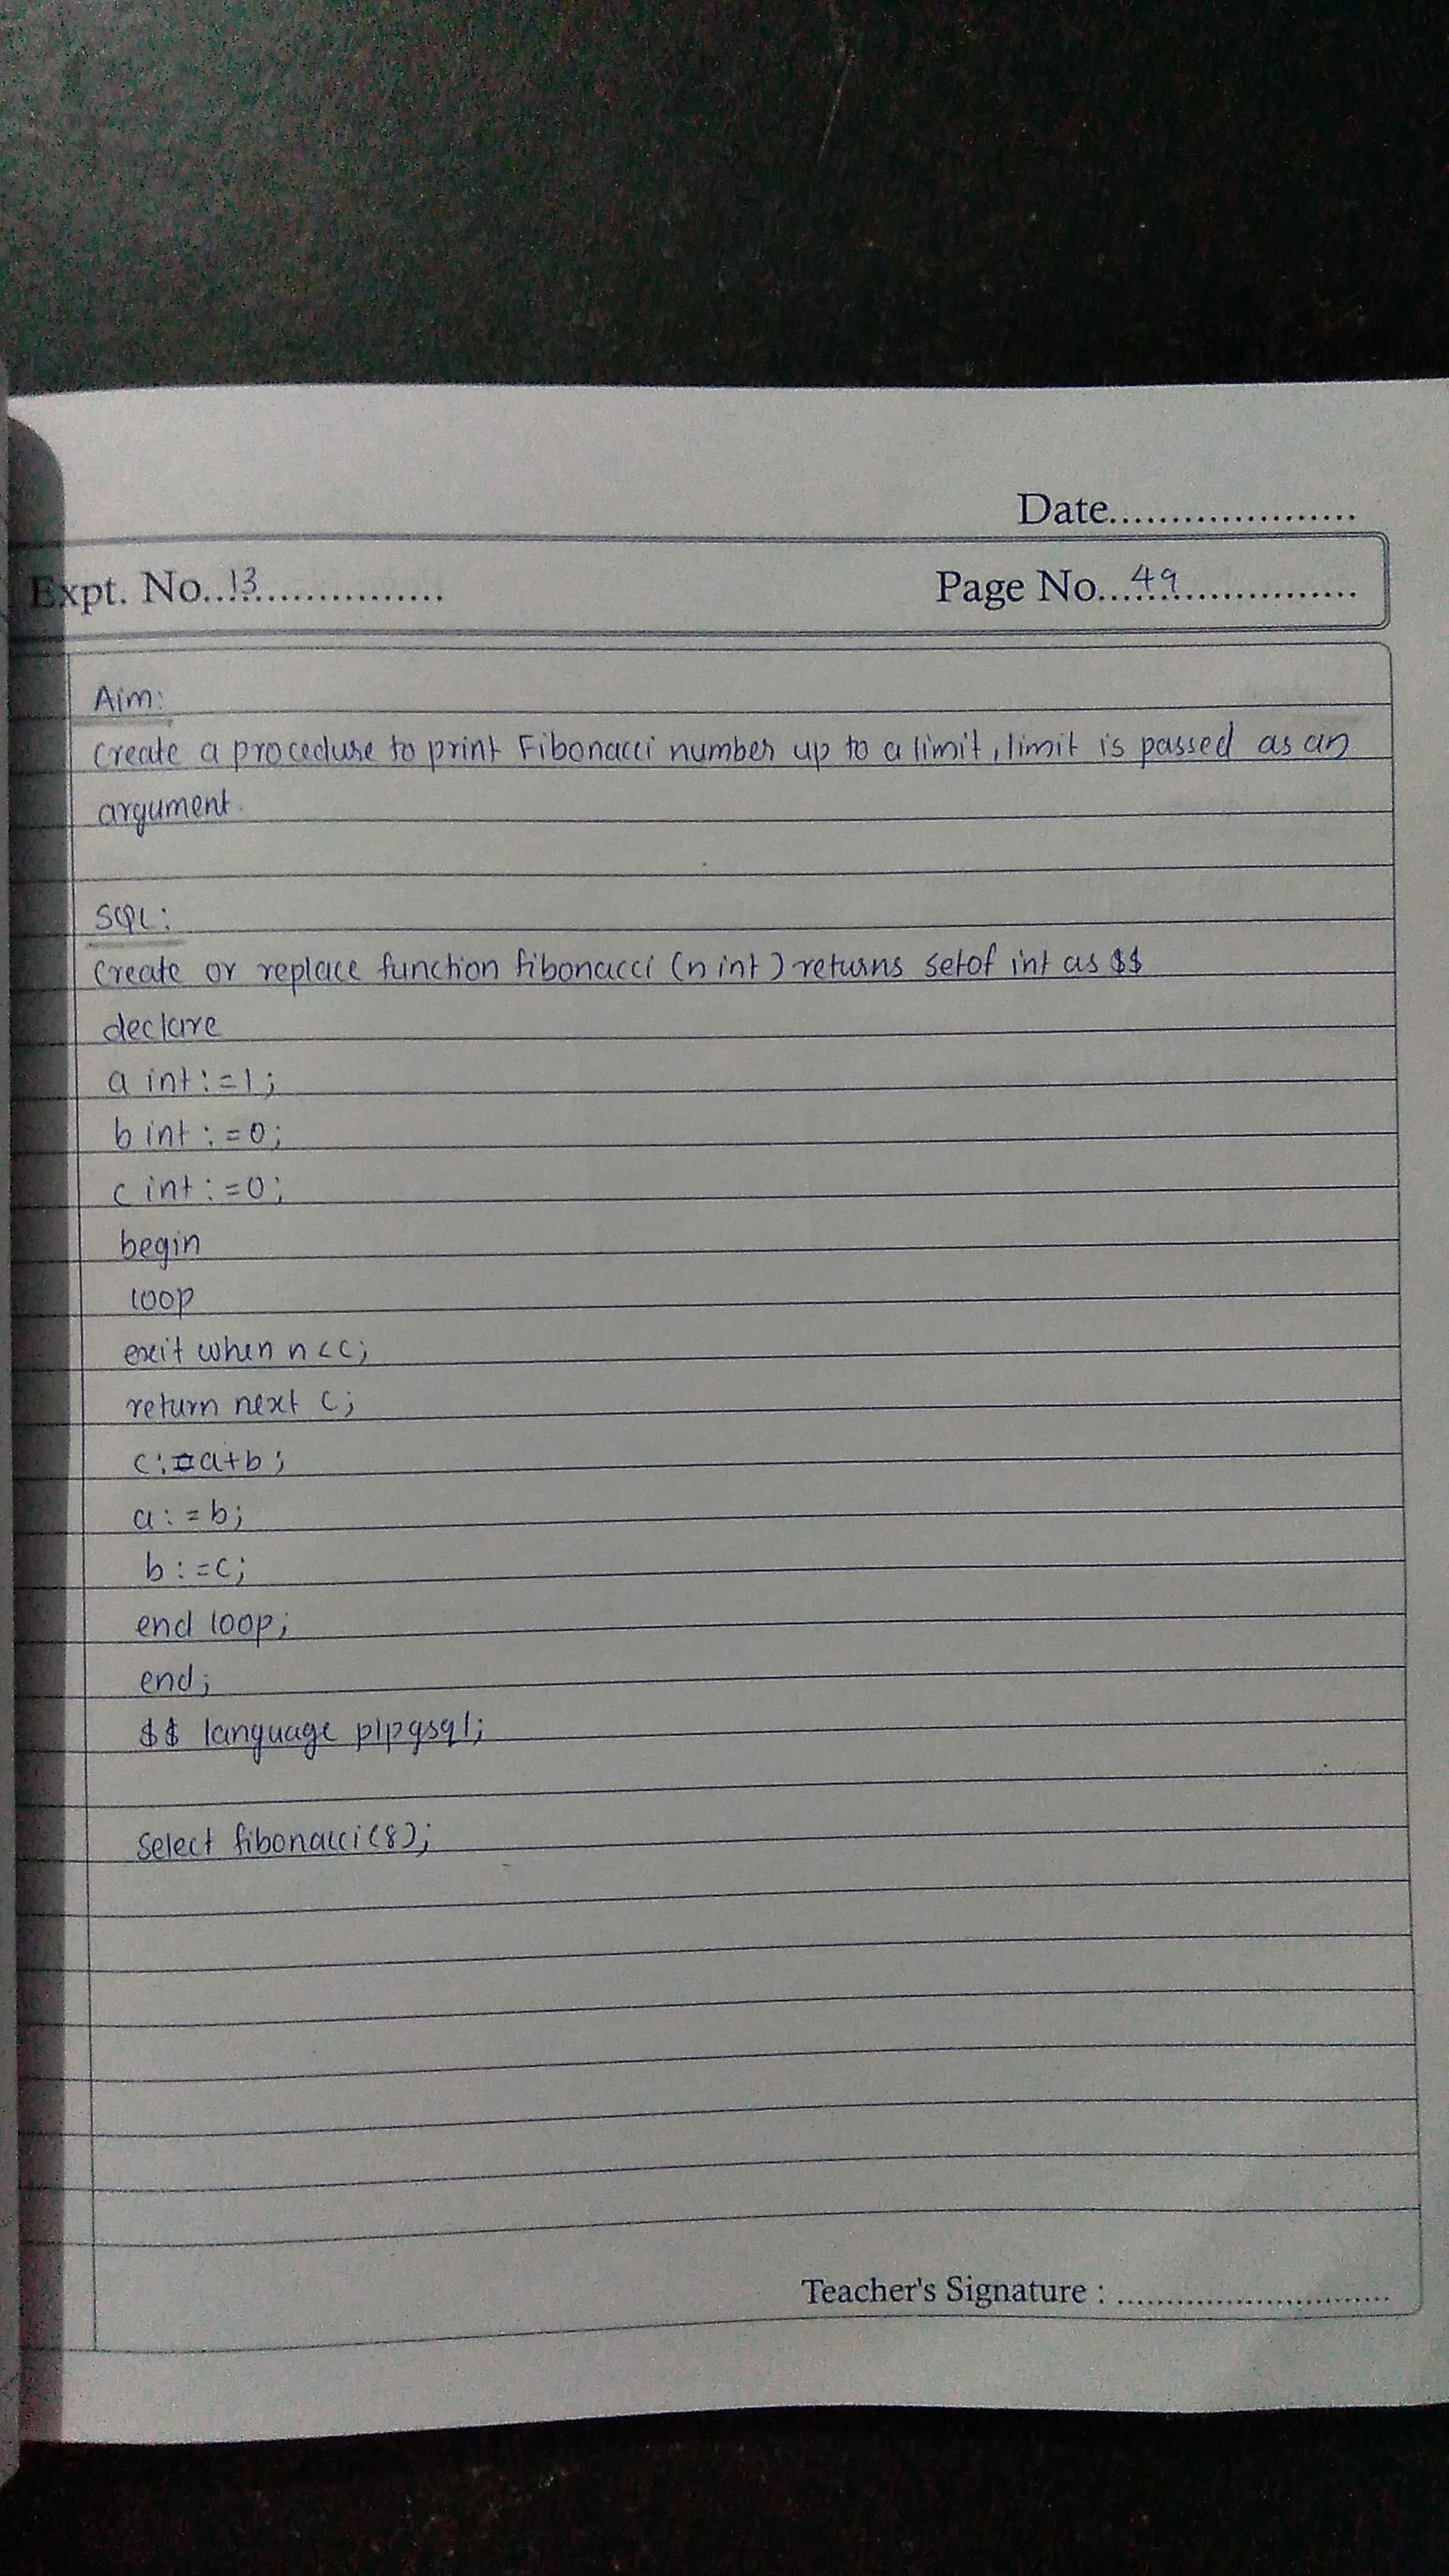 Date.....................
Expt. No..13...............
Page No...49.................
Aim:
Create a procedure to print Fibonacci number up to a limit, limit is passed as an
argument.
SQL:
Create or replace function fibonacci (n int) returns setof int as $$
declare
a int:=1;
b int:=0;
c int:=0;
begin
loop
exit when n<c;
return next c;
c:=a+b;
a:=b;
b:=c;
end loop;
end;
$$ language plpgsql;
Select fibonacci(8);
Teacher's Signature : ............................